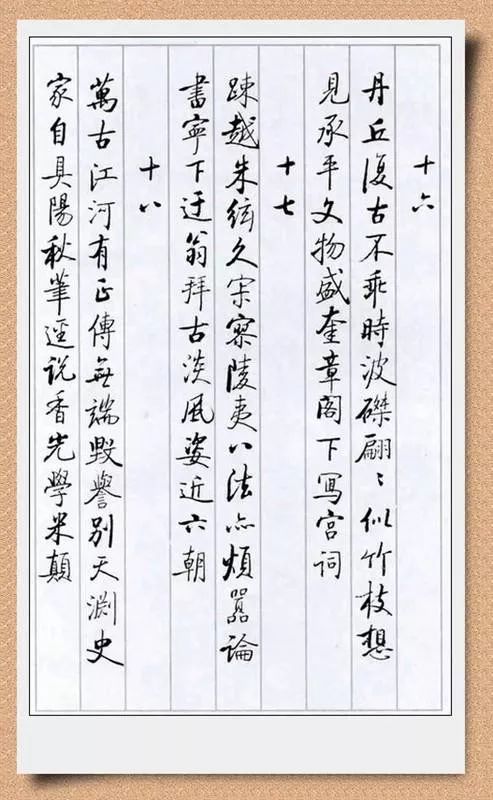 十六
丹丘復古不乖時波磔翩〻似竹枝想
見承平文物盛奎章閣下寫宮詞
十七
疎越朱絃久寂寥陵夷八法亦煩囂論
書寧下迂翁拜古淡風姿近六朝
十八
萬古江河有正傳無端毀譽別天淵史
家自具陽秋筆逕說香光學米顛